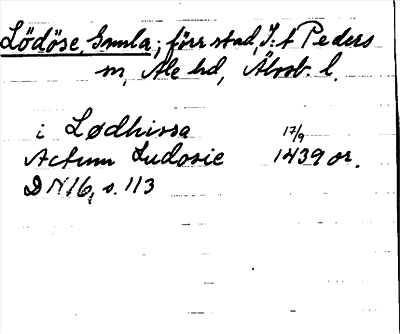 Lödöse, Gamla; förr stad, S:t Peders
sn, Ale hd, Älvsb. l.
i Lødhissa 17/9
Actum Ludosie 1439 or.
DN 16, s. 113